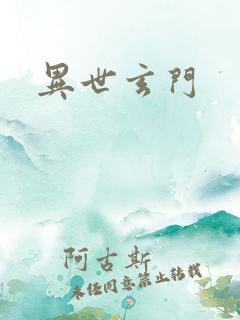 異世玄門
阿古斯
未经同意禁止转载